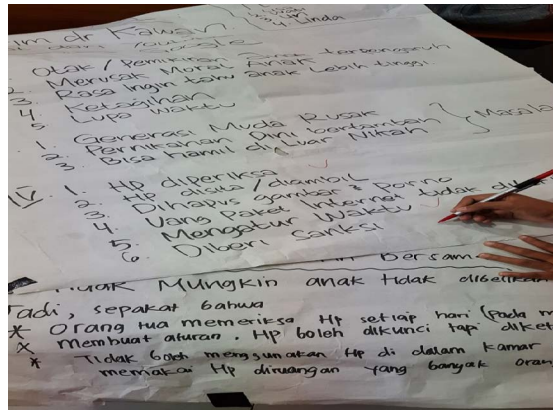 4. Linda
dr Kawan
1. Otak / pemikiran Anak terpengaruh
2. Merusak Moral Anak
3. Rasa ingin tahu anak lebih tinggi.
4. Ketagihan
5 Lupa waktu
1. Generasi Muda Rusak
2. Pernikahan Dini bertambah
3. Bisa Hamil di Luar Nikah
Masala
IV. 1. HP diperiksa
2. HP disita / diambil
3. Dihapus gambar 2 Porno
4. Uang Paket Internet tidak
5. Mengatur Waktu
6. Diberi Sanksi
Bersam
Tidak Mungkin anak tidak dibelikan
Jadi, sepakat bahwa
* Orang tua memeriksa Hp setiap hari (pada m
* membuat aturan. Hp boleh dikunci tapi diket
* Tidak boleh menggunakan Hp di dalam kamar
memakai Hp diruangan yang banyak oran